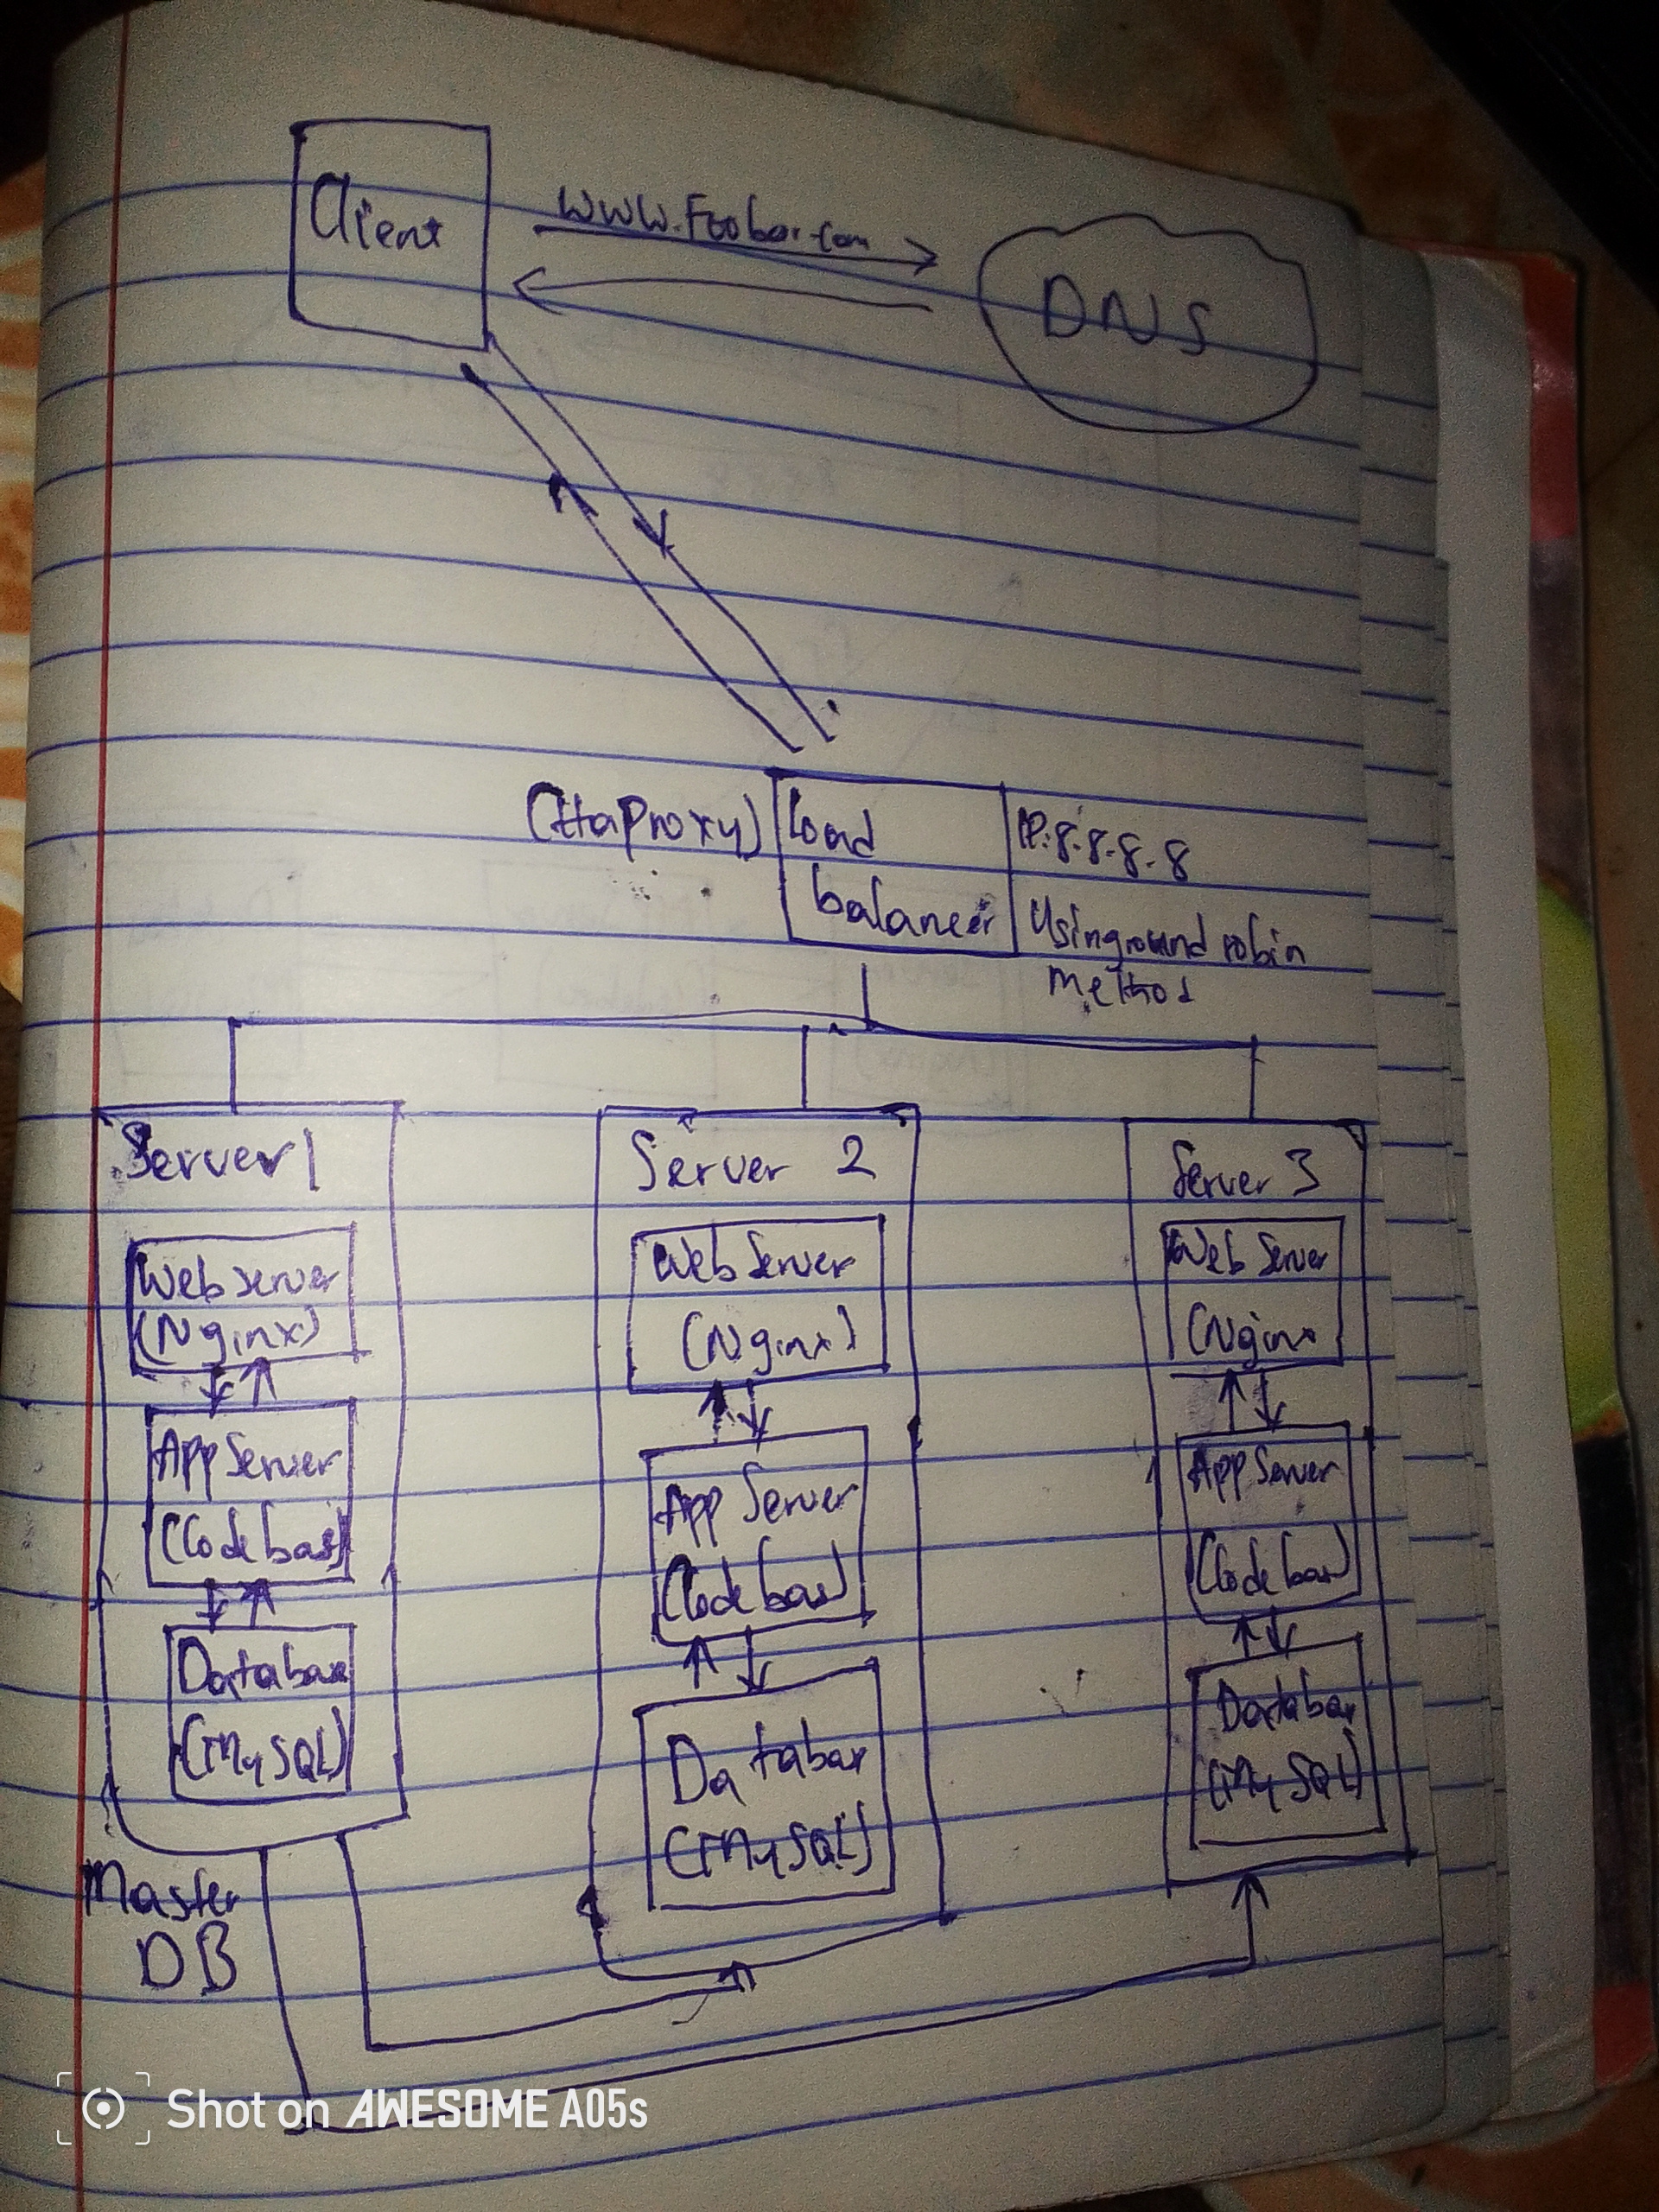 Client
www.Foobar.com
DNS
(HaProxy)
Load
balancer
IP:8.8.8.8
Using round robin
method
Server 1
Web server
(Nginx)
App Server
(Codebase)
Database
(MySQL)
Master
DB
Server 2
Web Server
(Nginx)
App Server
(Codebase)
Database
(MySQL)
Server 3
Web Server
(Nginx
App Server
(Codebase)
Database
(MySQL)
Shot on AWESOME A05s